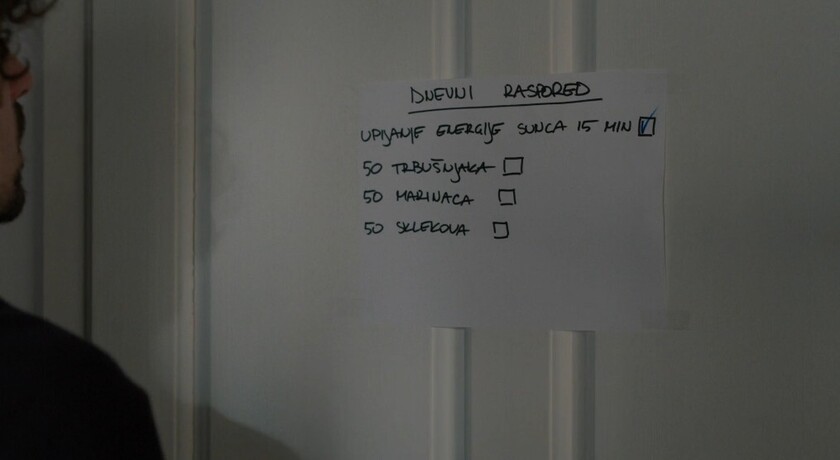 DNEVNI RASPORED
UPIJANJE ENERGIJE SUNCA 15 MIN
50 TRBUŠNJAKA
50 MARINACA
50 SKLEKOVA